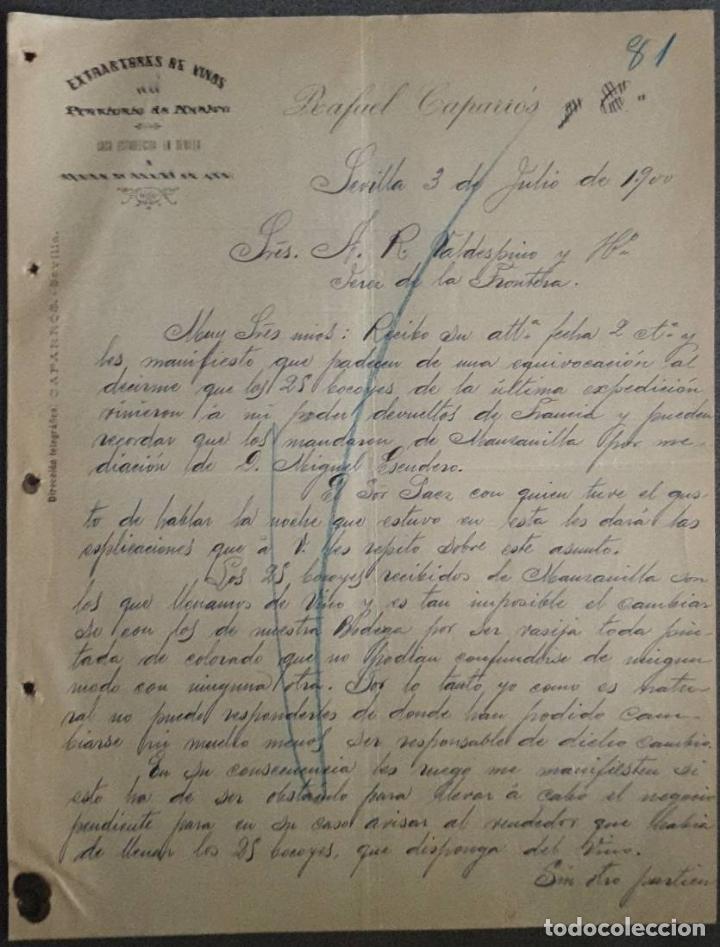 81
EXTRACTORES DE VINOS
CASA ESTABLECIDA EN SEVILLA
Rafael Caparrós
Dirección telegráfica: CAPARRÓS.-Sevilla.
Sevilla 3 de Julio de 1900
Srés. A. R. Valdespino y Hº
Jerez de la Frontera.
Muy Srés mios: Recibo su attª fecha 2 ctº y
les, manifiesto que padecen de una equivocación al
decirme que los 25 bocoyes de la última expedición
vinieron á mi poder devueltos de Francia y pueden
recordar que los mandaron de Manzanilla por me-
diación de D. Miguel Escudero.
El Sór Saez con quien tuve el gus-
to de hablar la noche que estuvo en esta les dará las
esplicaciones que á V. les repito sobre este asunto.
Los 25 bocoyes recibidos de Manzanilla son
los que llenamos de Vino y es tan imposible el cambiar
se con los de nuestra Bodega por ser vasija toda pin-
tada de colorado que no podian confundirse de ningun
modo con ninguna otra. Por lo tanto, yo como es natu-
ral no puedo responderles de donde han podido cam-
biarse ni mucho menos ser responsable de dicho cambio.
En su consecuencia les ruego me manifiesten si
esto ha de ser obstáculo para llevar á cabo el negocio
pendiente para en su caso avisar al vendedor que habia
de llenar los 25 bocoyes, que disponga del Vino.
Sin otro particu
todocoleccion.net